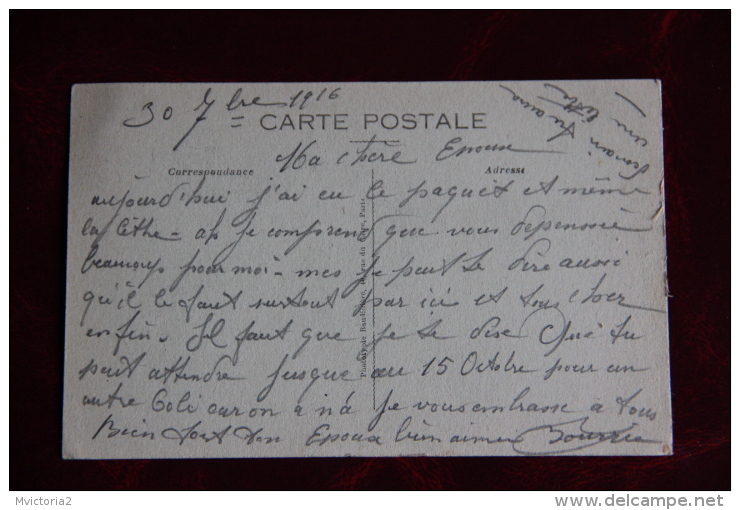 30 7bre 1916
= CARTE POSTALE
demain tu aura
une lettre
Ma chère Epouse
Correspondance
Adresse
aujourd'hui j'ai eu le paquet et même
la lèthe - ah je comprend que vous dépenssié
beaucoup pour moi - mes je peut te dire aussi
qu'il le faut surtout par ici et tous cher
enfin. Il faut que je te dise que tu
peut attendre jusque au 15 Octobre pour un
autre Coli car on a n'a je vous embrasse a tous
Bien fort ton Epoux bien aimer Bourrie
Mvictoria2
delcampe.net